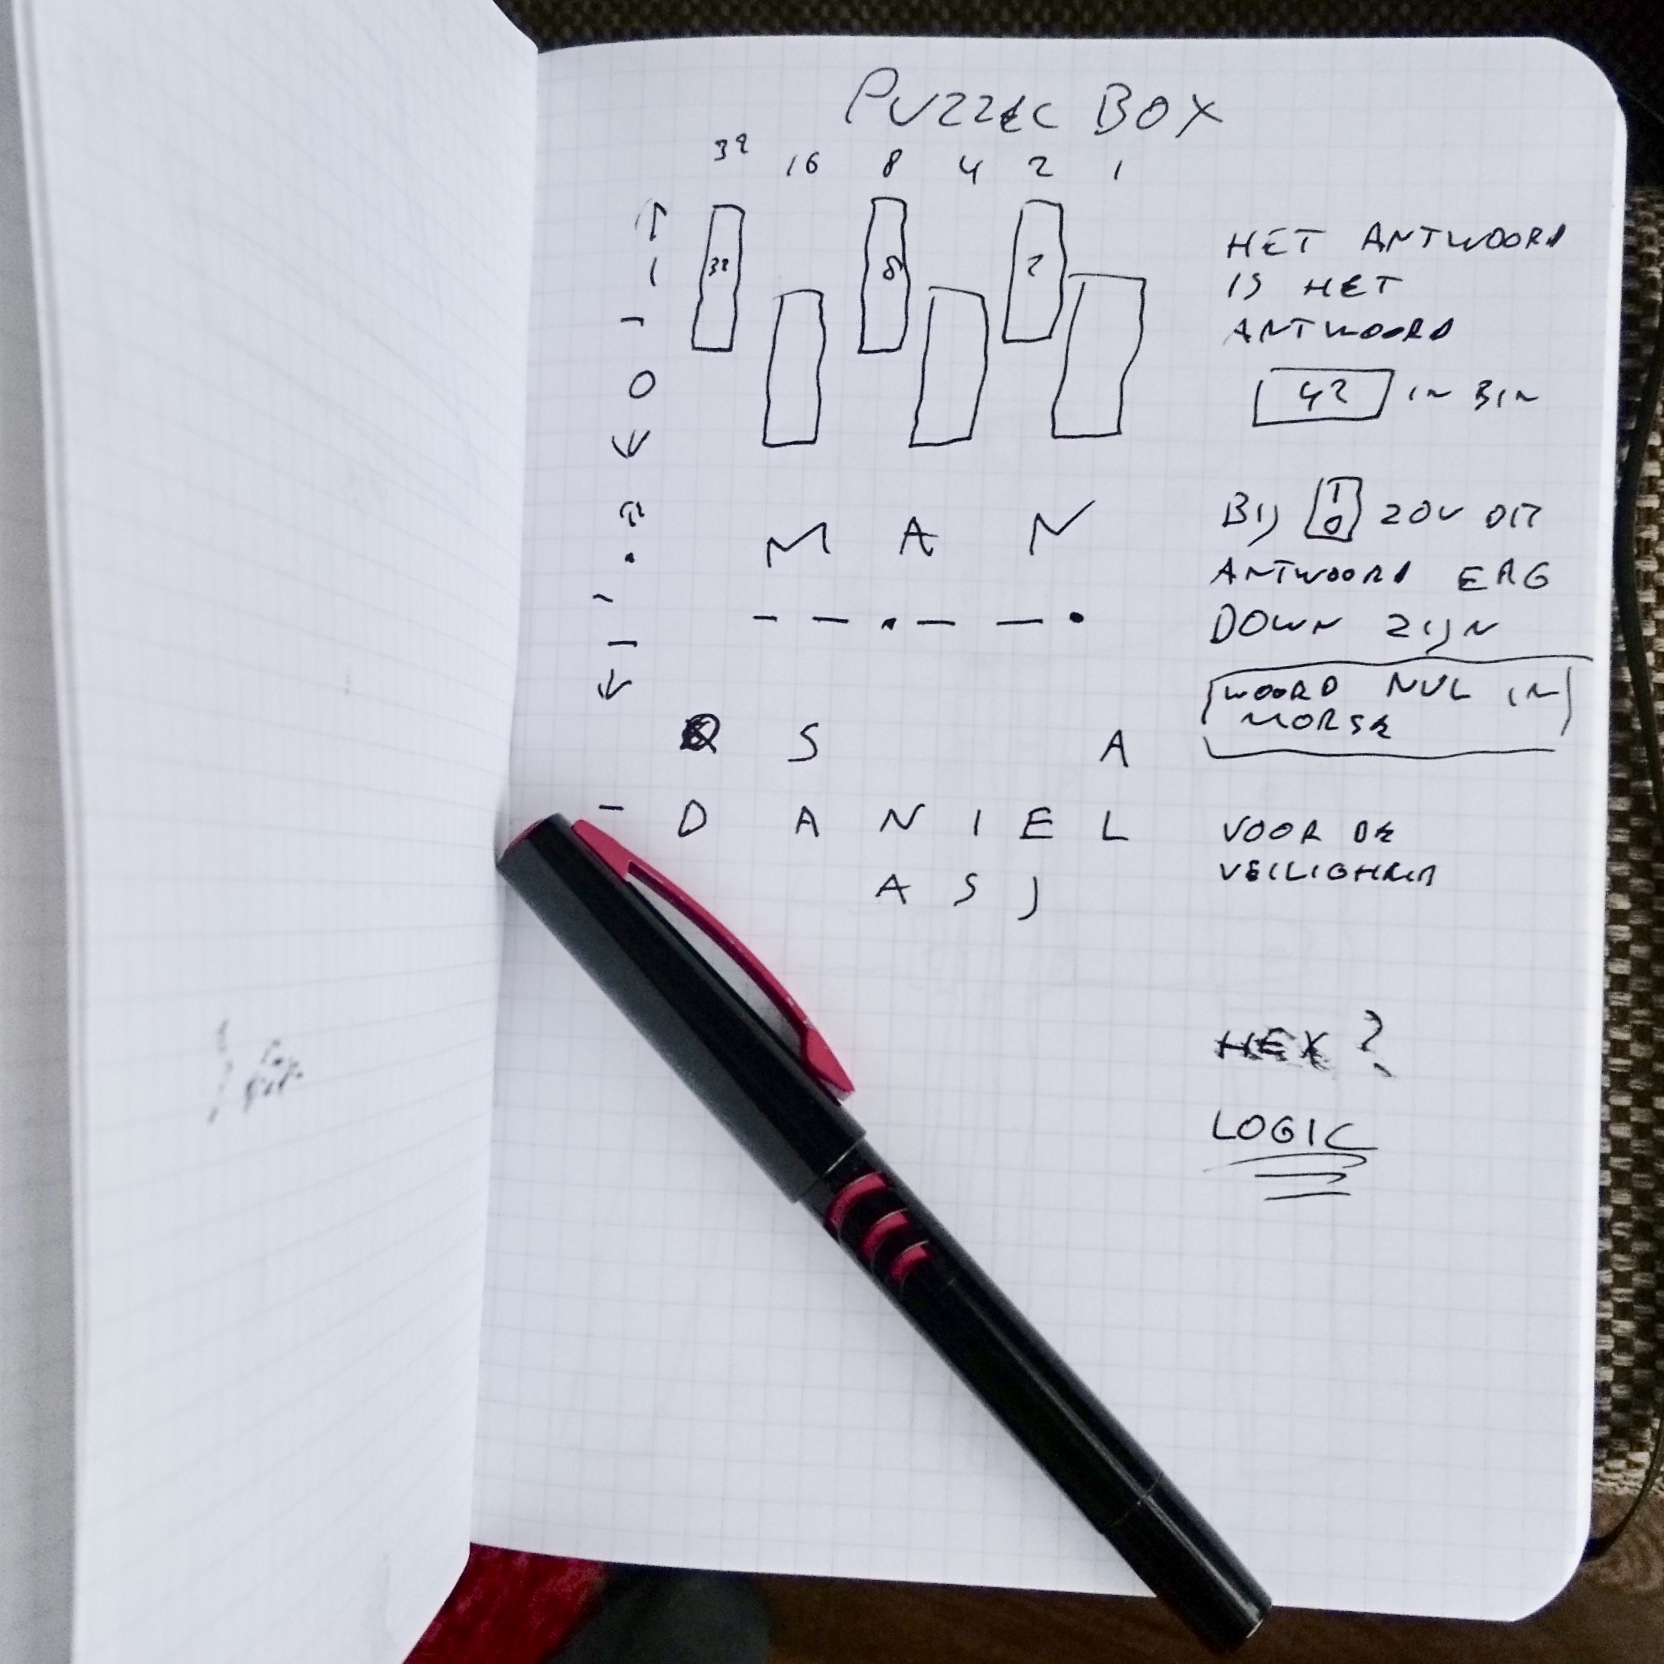 PUZZLE BOX
32 16 8 4 2 1
32 8 2
1
0
HET ANTWOORD
IS HET
ANTWOORD
42 IN BIN
M A N
— — • — — •
BIJ 1 0 ZOU DIT
ANTWOORD ERG
DOWN ZIJN
WOORD NUL IN
MORSE
S A
- D A N I E L
A S J
VOOR DE
VEILIGHEID
HEX ?
LOGIC